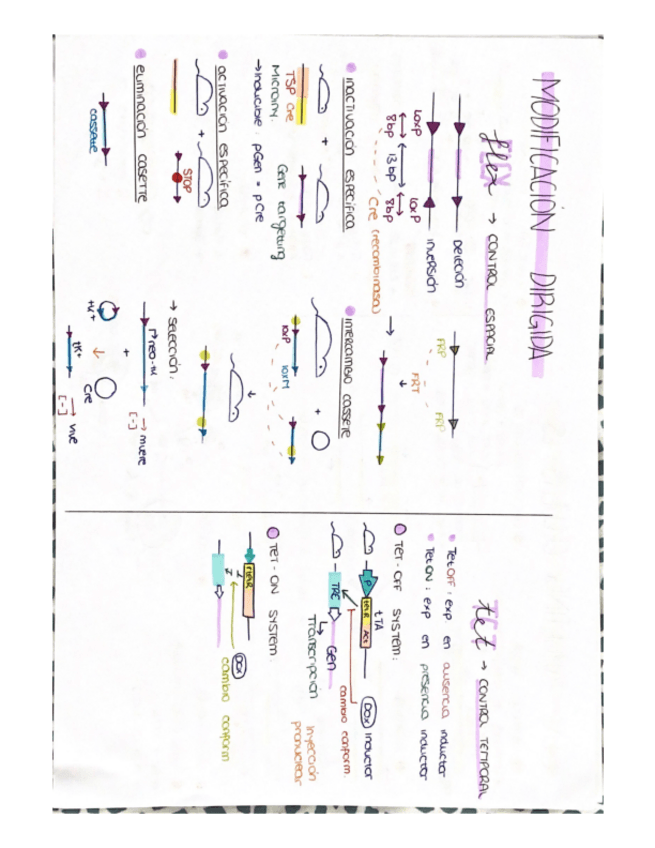 MODIFICACIÓN DIRIGIDA
FLEX
flex → CONTROL ESPACIAL
DELECIÓN
INVERSIÓN
loxP loxP
8bp 13bp 8bp
Cre (recombinasa)
FRP FRP
FRT
inactivación específica
+
TSP Cre
Microiny. Gene targeting
→ inducible: pGen = pCre
activación específica
+
STOP
eliminación casette
cassette
intercambio cassete
+
loxP loxM
→ selección:
neo-tk → muere
[-]
+
tk+ Cre
tk+ → vive
[-]
TET
tet → CONTROL TEMPORAL
TetOFF: exp en ausencia inductor
TetON: exp en presencia inductor
TET-OFF SYSTEM:
tTA
P tetR Act
DOX inductor
cambio conform.
TRE Gen
Transcripción
inyección pronuclear
TET-ON SYSTEM:
rtetR
DOX
cambio conform